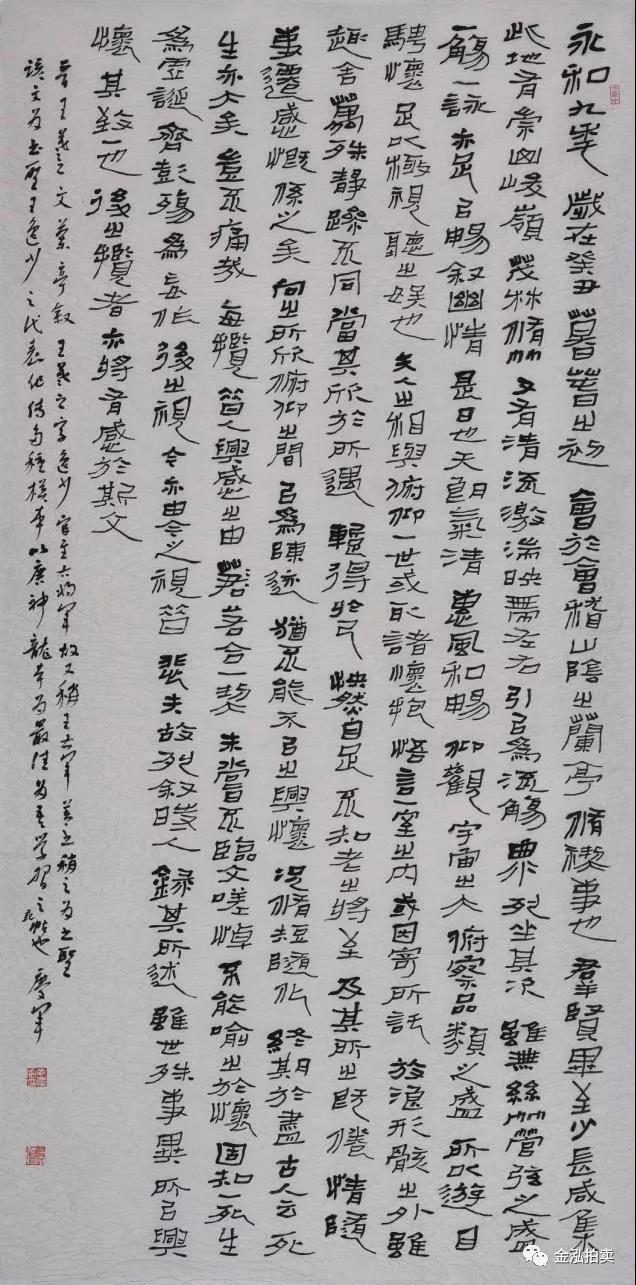 永和九年歲在癸丑暮春之初會於會稽山陰之蘭亭脩禊事也羣賢畢至少長咸集
此地有崇山峻嶺茂林脩竹又有清流激湍映帶左右引㠯為流觴曲水列坐其次雖無絲竹管弦之盛
一觴一詠亦足㠯暢敘幽情是日也天朗氣清惠風和暢仰觀宇宙之大俯察品類之盛所以遊目
騁懷足以極視聽之娛也夫人之相與俯仰一世或取諸懷抱悟言一室之內或因寄所託放浪形骸之外雖
趣舍萬殊靜躁不同當其欣於所遇輙得於己怏然自足不知老之將至及其所之既惓情隨
事遷感慨係之矣向之所欣俯仰之間㠯為陳迹猶不能不㠯之興懷況脩短隨化終期於盡古人云死
生亦大矣豈不痛哉每攬昔人興感之由若合一契未嘗不臨文嗟悼不能喻之於懷固知一死生
為虛誕齊彭殤為妄作後之視今亦由今之視昔悲夫故列敘時人錄其所述雖世殊事異所㠯興
懷其致一也後之攬者亦將有感於斯文
晉王羲之文蘭亭敘王羲之字逸少官至右將軍故又稱王右軍善書稱之為書聖
該文為書聖王逸少之代表作傳多種摹本以唐神龍本為最佳為吾學習之帖也慶軍
金泓拍卖